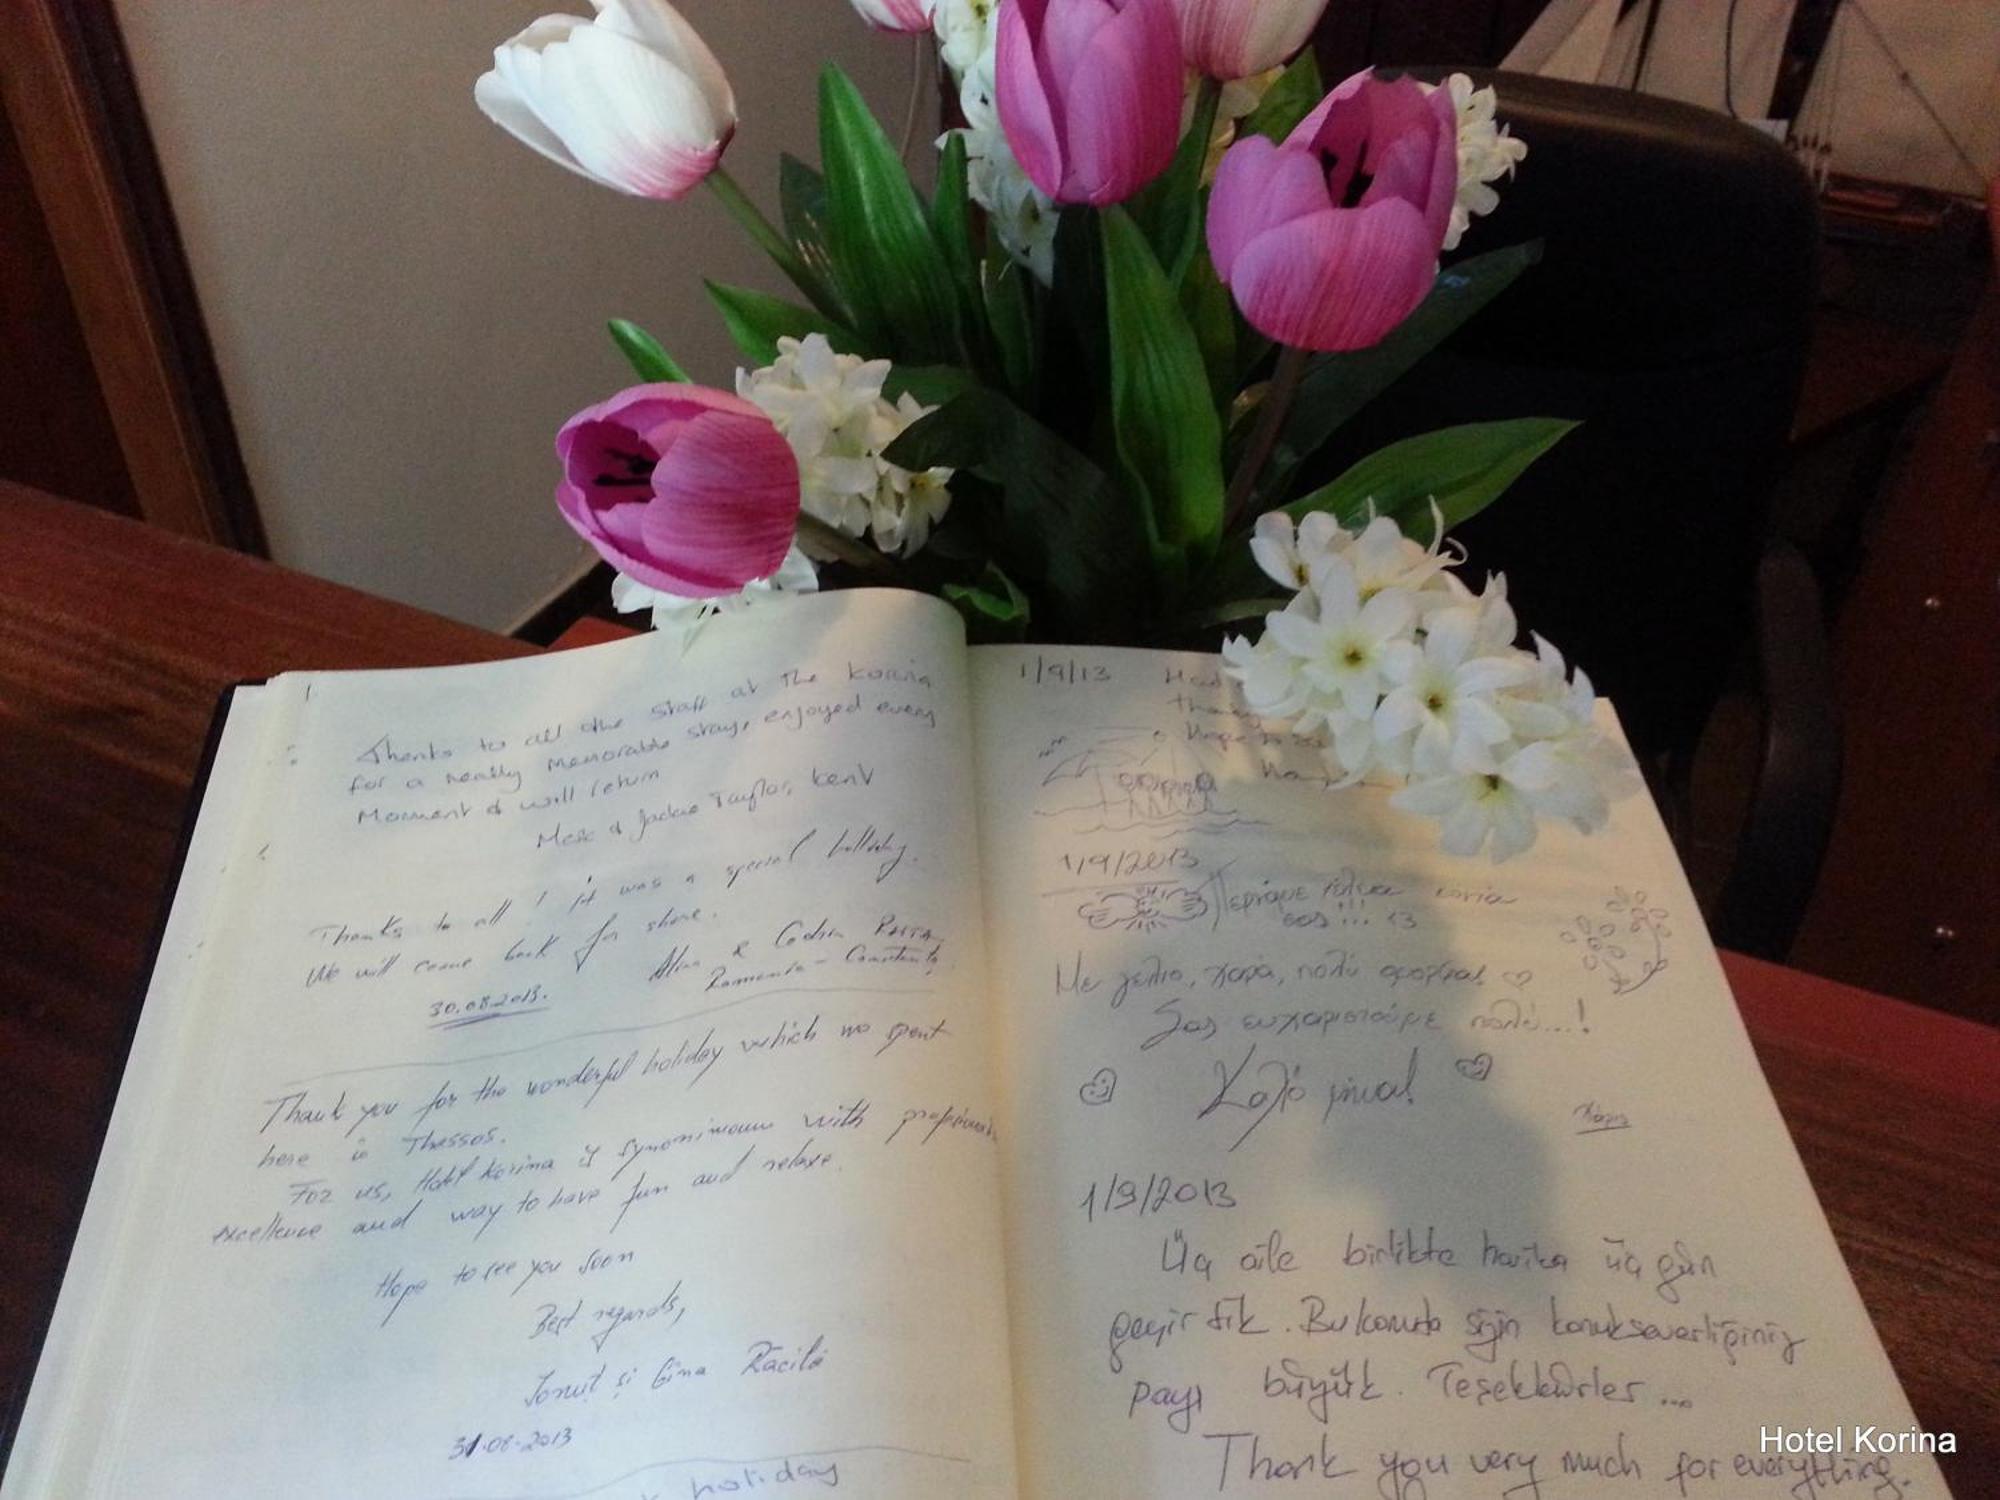 Thanks to all the staff at the Korina
for a really memorable stay, enjoyed every
Moment & will return
& Jackie Taylor, Kent
Thanks to all! it was a special holliday.
We will come back for shore.
Alina & Codrin
Romania - Constanta
30.08.2013.
Thank you for the wonderful holiday which we spent
here in Thassos.
For us, Hotel Korina is synonimoum with
excellence and way to have fun and relaxe.
Hope to see you soon
Best regards,
Ionuț și Gina Răcilă
31.08.2013
holiday
1/9/13
Hope to
1/9/2013
Περάμε τέλεια
σας!!! <3
Με γέλιο, χαρά, πολύ
Σας ευχαριστούμε πολύ...!
Καλό μήνα!
1/9/2013
Üç aile birlikte harika üç gün
geçirdik. Bu konuda sizin konukseverliğiniz
payı büyük. Teşekkürler...
Thank you very much for everything.
Hotel Korina